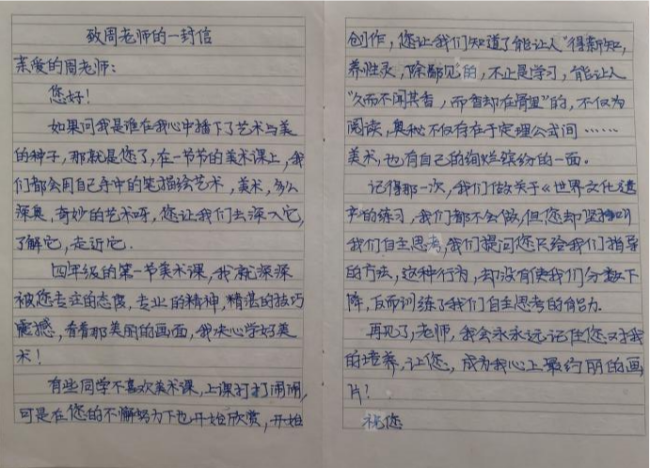 致周老师的一封信
亲爱的周老师：
您好！
如果问我是谁在我心中播下了艺术与美
的种子，那就是您了，在一节节的美术课上，我
们都会用自己手中的笔描绘艺术，美术，多么
深奥，奇妙的艺术呀，您让我们去深入它，
了解它，走近它．
四年级的第一节美术课，我就深深
被您专注的态度，专业的精神，精湛的技巧
震撼，看着那美丽的画面，我决心学好美
术！
有些同学不喜欢美术课，上课打打闹闹，
可是在您的不懈努力下也开始欣赏，开始
创作，您让我们知道了能让人“得新知，
养性灵，除鄙见的，不止是学习，能让人
“久而不闻其香，而香却在骨里”的，不仅为
阅读，奥秘不仅存在于定理公式间……
美术，也有自己的绚烂缤纷的一面．
记得那一次，我们做关于《世界文化遗
产的练习，我们都不会做，但您却坚持叫
我们自主思考，我们提问您只给我们指导
的方法，这种行为，却没有使我们分数下
降，反而训练了我们自主思考的能力．
再见了，老师，我会永永远记住您对我
的培养，让您，成为我心上最绚丽的画
片！
祝您